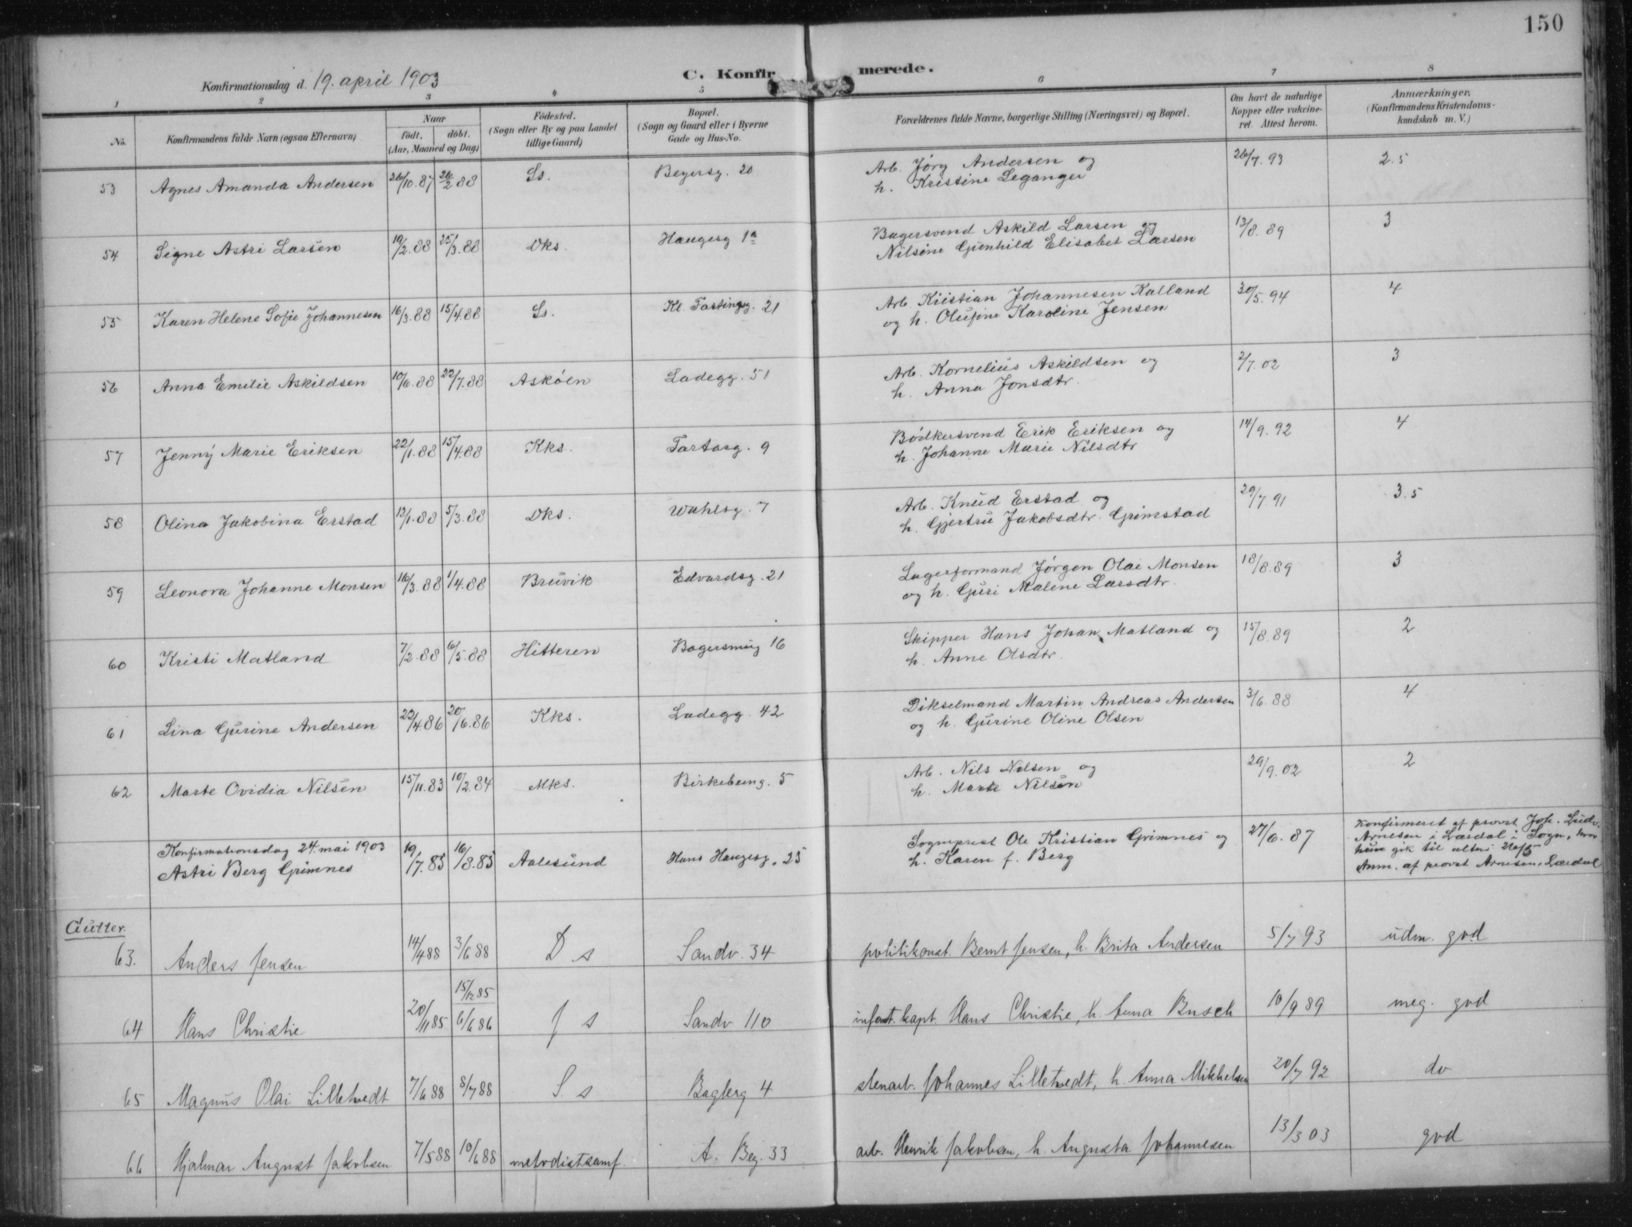 150
C. Konfirmerede.
Konfirmationsdag d. 19. april 1903
1 2 3 4 5 6 7 8
No.
Konfirmandens fulde Navn (ogsaa Efternavn)
Naar
født. døbt.
(Aar, Maaned og Dag)
Fødested.
(Sogn eller By og paa Landet
tillige Gaard)
Bopæl.
(Sogn og Gaard eller i Byerne
Gade og Hus-No.
Forældrenes fulde Navne, borgerlige Stilling (Næringsvei) og Bopæl.
Om havt de naturlige
Kopper eller vakcine-
ret. Attest herom.
Anmærkninger.
(Konfirmandens Kristendoms-
kundskab m. V.)
53 Agnes Amanda Andersen 26/10.87 26/2 88 Ss. Beyersg. 20 Arb. Jørg Andersen og 26/7. 93 2.5
h. Kristine Leganger
54 Signe Astri Larsen 19/2.88 25/3.88 Dks. Haugesg 1a Bagersvend Askild Larsen og 13/8. 89 3
Nilsine Gunhild Elisabet Larsen
55 Karen Helene Sofie Johannesen 16/3.88 15/4.88 Ss. Kl. 21 Arb. Kristian Johannesen Kalland 30/5. 94 4
og h. Olufine Karoline Jensen
56 Anna Emilie Askildsen 10/6.88 22/7.88 Askøen Ladegg. 51 Arb. Kornelius Askildsen og 2/7. 02 3
h. Anna Jonsdtr.
57 Jenny Marie Eriksen 22/1.88 15/4.88 Kks. Tartarg. 9 Bødkersvend Erik Eriksen og 14/9. 92 4
h. Johanne Marie Nilsdtr
58 Olina Jakobina Erstad 13/1.88 5/3.88 Dks. Wahlsg. 7 Arb. Knud Erstad og 29/7. 91 3.5
h. Gjertru Jakobsdtr. Grimstad
59 Leonora Johanne Monsen 16/3.88 1/4.88 Bruvik Edvardsg. 21 Lagerformand Jørgen Olai Monsen 18/8.89 3
og h. Guri Malene Larsdtr.
60 Kristi Matland 7/2.88 6/5.88 Hitteren 16 Skipper Hans Johan Matland og 15/8.89 2
h. Anne Olsdtr.
61 Lina Gurine Andersen 22/4.86 20/6.86 Kks. Ladegg. 42 Dikselmand Martin Andreas Andersen 3/6.88 4
og h. Gurine Oline Olsen
62 Marte Ovidia Nilsen 15/11.83 10/2.84 Mks. Birkebeing. 5 Arb. Nils Nilsen og 29/9.02 2
h. Marte Nilsen
Konfirmationsdag 24. mai 1903
Astri Berg Grimnes 19/7.85 16/8.85 Aalesund Hans Haugesg. 25 Sogneprest Ole Kristian Grimnes og 27/6. 87
h. Karen f. Berg
Konfirmeret af provst Joh. Ludv.
Arnesen i Lærdal i Sogn, hvor
hun gik til alters
Anm. af provst Arnesen, Lærdal
Gutter.
63. Anders Jensen 14/4 88 3/6 88 D s Sandv. 34 politikonst. Bernt Jensen, h. Brita Andersen 5/7 93 udm. god
64 Hans Christie 20/11 85 15/12 85 6/6 86 J s Sandv 110 infant. kapt. Hans Christie, h. Anna Busch 10/9 89 meg. god
65 Magnus Olai Lilletvedt 7/6 88 8/7 88 S s Baglerg 4 stenarb. Johannes Lilletvedt, h. Anna Mikkelsen 20/7 92 do
66 Hjalmar August Jakobsen 7/5 88 10/6 88 metodistsamf. A. Beg. 33 arb. Henrik Jakobsen, h. Augusta Johannesen 13/3 03 god